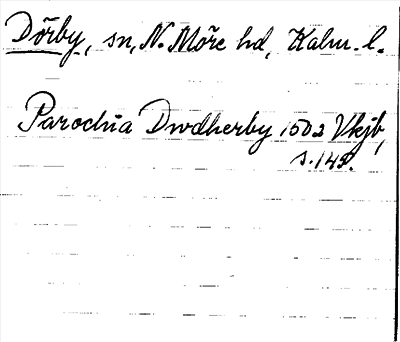 Dörby, sn, N. Möre hd, Kalm. l.
Parochia Dwdherby 1502 Vkjb,
s. 145.